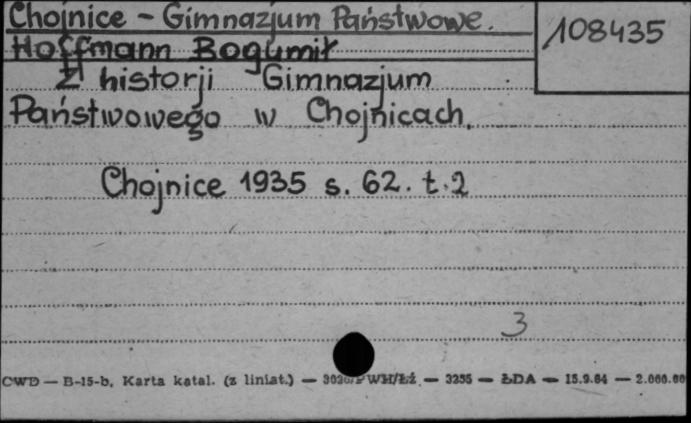 Chojnice - Gimnazjum Państwowe.
108435
Hoffmann Bogumił
Z historji Gimnazjum
Państwowego w Chojnicach.
Chojnice 1935 s. 62. t. 2
3
CWD — B-15-b, Karta katal. (z liniat.) — — 3255 — ŁDA — 15.9.64 — 2.000.00